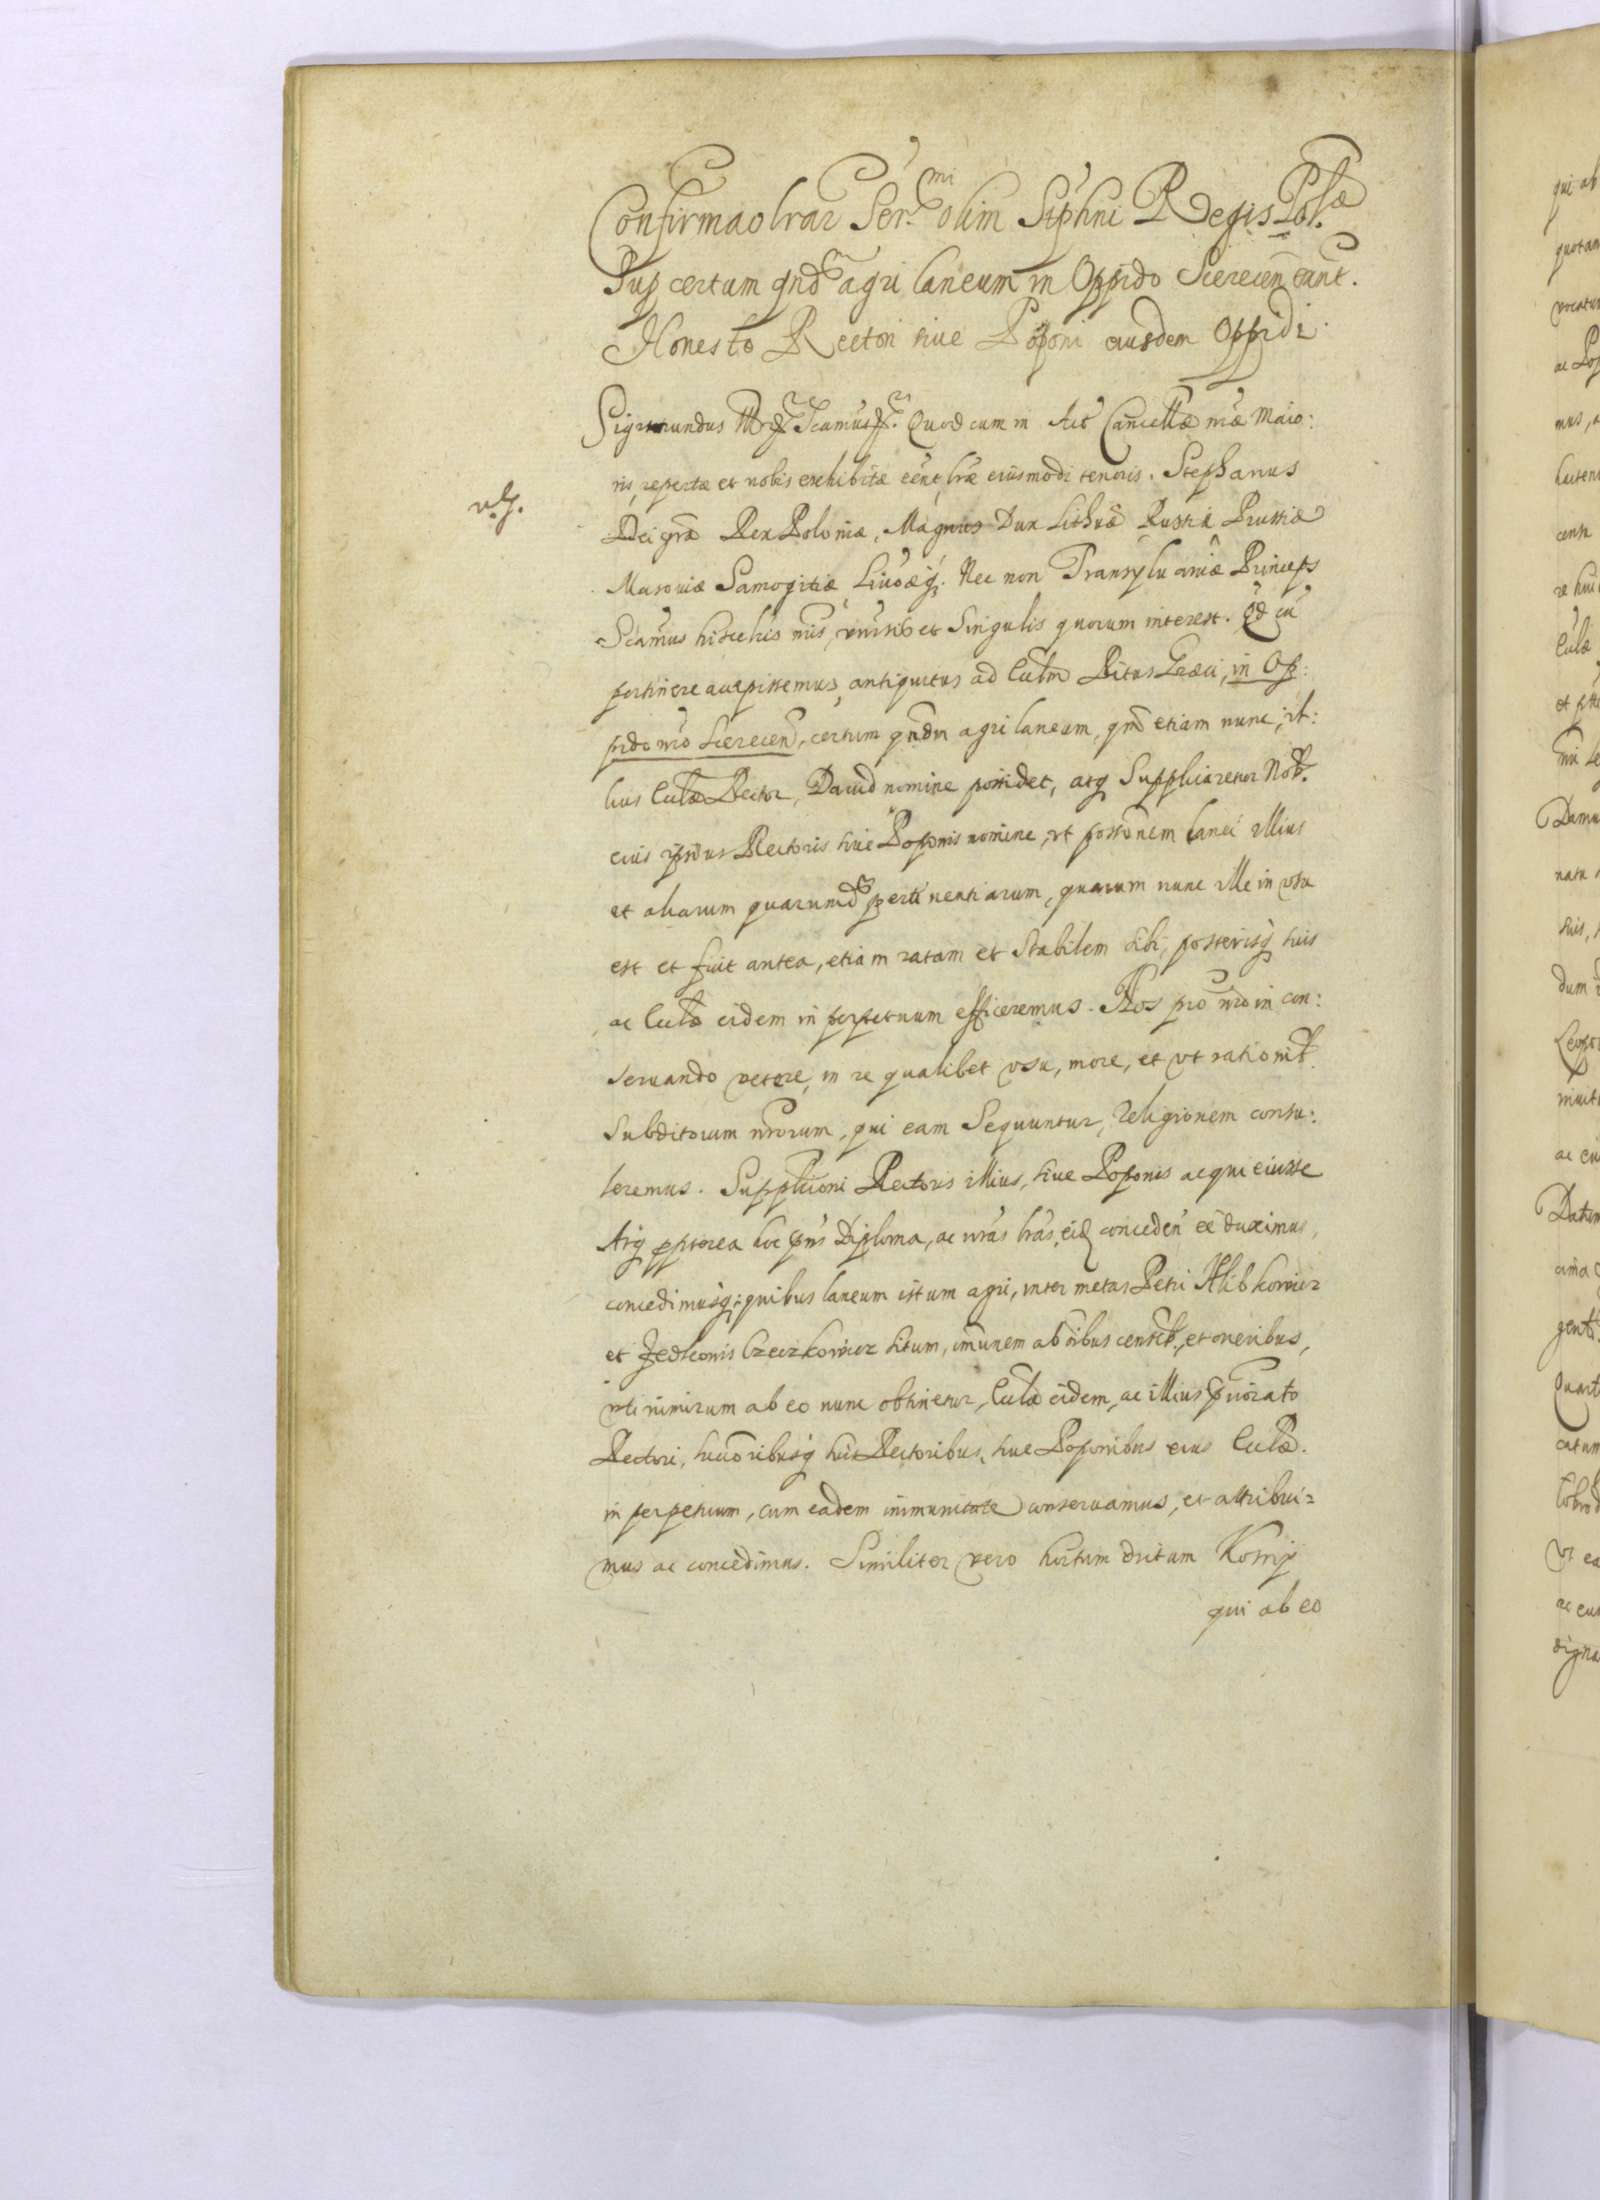 Confirmao lrar Ser.mi olim Stephni Regis Pol.æ
Sup certum qnd agri laneum in Oppido Scerecen eant.
Honesto Rectori siue Poponi eiusdem Oppidi
Sigismundus Scamus Quod cum in Act Cancellæ nræ Maio:
ris, repertæ et nobis exhibitæ eent, lræ eiusmodi tenoris. Stephanus
Dei gra Rex Poloniæ, Magnus Dux Lithuæ Russiæ Prussiæ
Masouiæ Samogitiæ, Liuoæq. Nec non Transyluaniæ Princeps
Scamus hisce lris nris, vnisib et Singulis quorum interest. Qd cu
pertinere accepissemus, antiquitus ad Cclm Ritus Græci, in Op:
pido nro Scerecen, certum qndm agri laneum, qm etiam nunc, il:
lius Cclæ Rector, Dauid nomine possidet, atq Supplicaretur Nob.
eius ipsius Rectoris siue Poponis nomine, vt possonem lanei illius
et aliarum quarumd pertinentiarum, quarum nunc ille in vsu
est et fuit antea, etiam ratam et Stabilem sibi, posterisq suis
ac Cclæ eidem in perpetuum efficeremus. Nos pro nro in con:
seruando vetere, in re qualibet vsu, more, et vt rationib.
Subditorum nrorum, qui eam Sequuntur, Religionem consu:
leremus. Supplicioni Rectoris illius, siue Poponis acquieuisse
Atq pptorea hoc pns Diploma, ac nras lras, eid conceden ee duximus,
concedimusq: quibus laneum istum agri, inter metas Petri Hlibkowicz
et Fedkonis Czeczkowicz situm, imunem ab oibus censib., et oneribus,
vti nimirum ab eo nunc obtinetur, Cclæ eidem, ac illius
Rectori, succoribusq suis Rectoribus, siue Poponibus eius Cclæ.
in perpetuum, cum eadem inmunitate conseruamus, et attribui=
mus ac concedimus. Similiter vero hortum dictum
qui ab eo